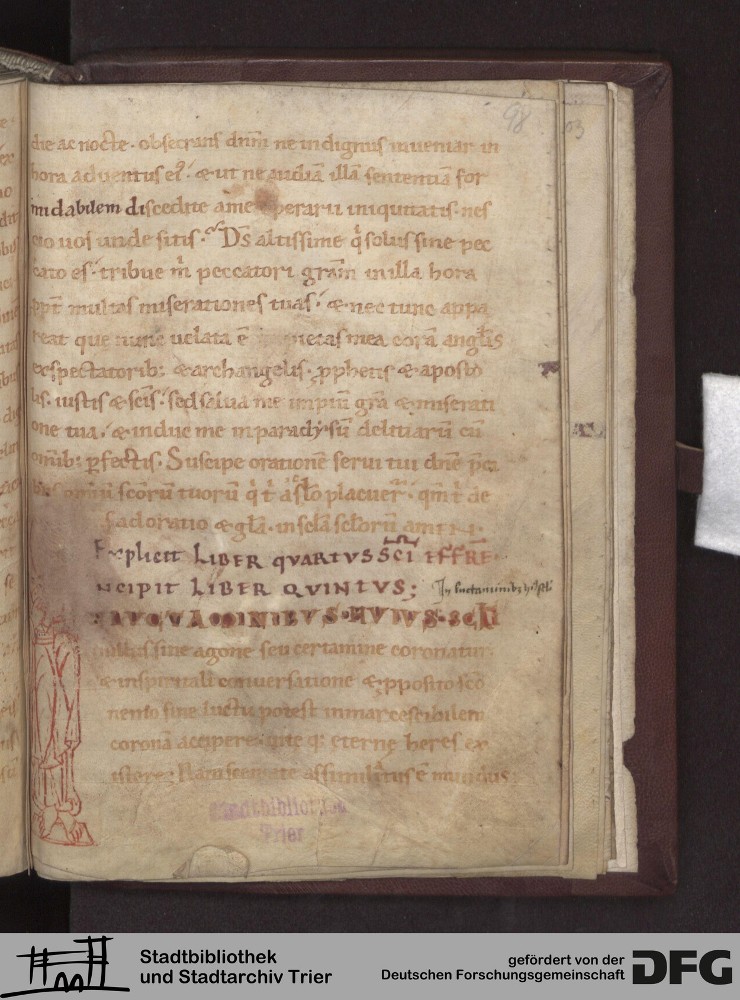 98
die ac nocte. obsecrans dnm̄ ne indignus inueniar in
hora aduentus eꝰ. & ut ne audiā illā sententiā for
midabilem discedite a me operarii iniquitatis. nes
cio uos unde sitis. Ds̄ altissime q̇ solus sine pec
cato es. tribue m̄ peccatori grām in illa hora
ppt̄ multas miserationes tuas. & nec tunc appa
reat que nunc uelata ē impietas mea corā angl̄is
exspectatorib: & archangelis. prophetis & aposto
lis. iustis & scīs. sed salua me impiū grā & miserati
one tua. & induc me in paradysū delitiarū cū
omīb: pfectis. Suscipe orationē serui tui dnē
omiū scōrū tuorū q̇ t̄ a sclo placuer̄. qm̄ t̄ de
& adoratio & glā. in scla sclorū amen.
Explicit LIBER QVARTVS SC̄I EFFRE
NCIPIT LIBER QVINTVS;
HVIVS. SCLI
nullus sine agone seu certamine coronatur.
& in spirituali conuersatione & pposito
sine luctu potest inmarcescibilem
coronā accipere. uite q; eterne heres ex
istere. Nam assimilatus ē mundus
03
Stadtbibliothek
Trier
Stadtbibliothek
und Stadtarchiv Trier
gefördert von der
Deutschen Forschungsgemeinschaft
DFG